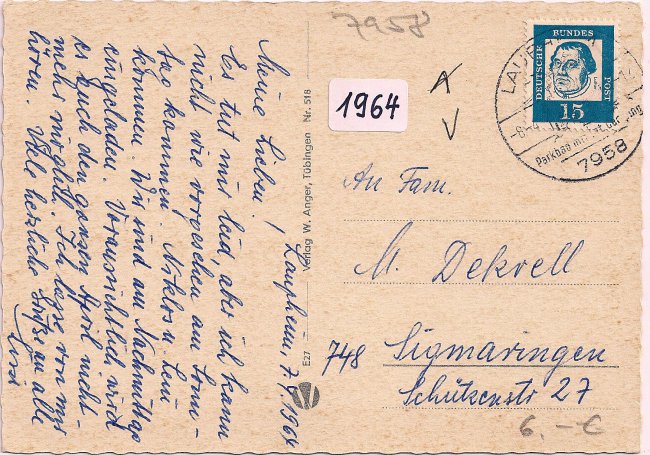 7958
1964
A
V
Laupheim, 7.4.1964
Meine Lieben!
Es tut mir leid, aber ich kann
nicht wie vorgesehen am Sonn-
tag kommen. Niklos u. Leni
kommen. Wir sind am Nachmittag
eingeladen. Voraussichtlich wird
es auch den ganzen April nicht
mehr möglich. Ich lasse von mir
hören. Viele herzliche Grüße an alle
Verlag W. Anger, Tübingen Nr. 518
E27
DEUTSCHE BUNDES POST
15
LAUPHEIM
Parkbad
7958
An Fam.
M. Dekrell
748 Sigmaringen
Schützenstr 27
6.-€